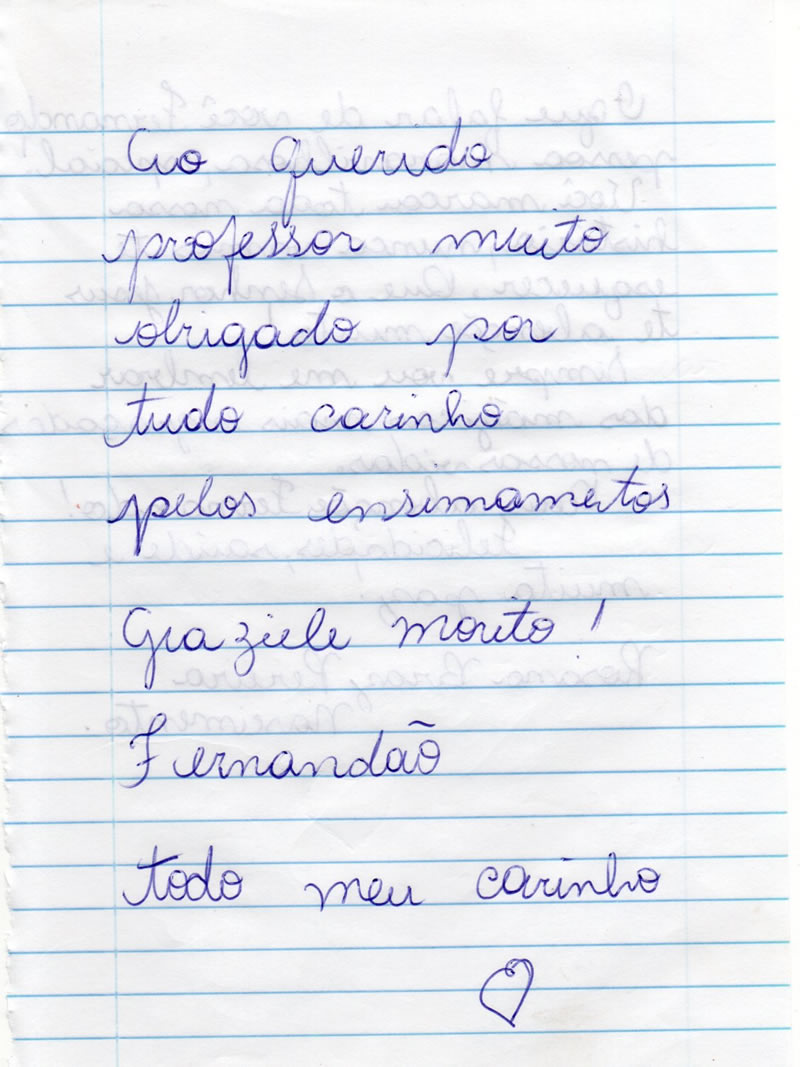 Ao querido
professor muito
obrigado por
tudo carinho
pelos ensimamentos
Graziele morito!
Fernandão
todo meu carinho